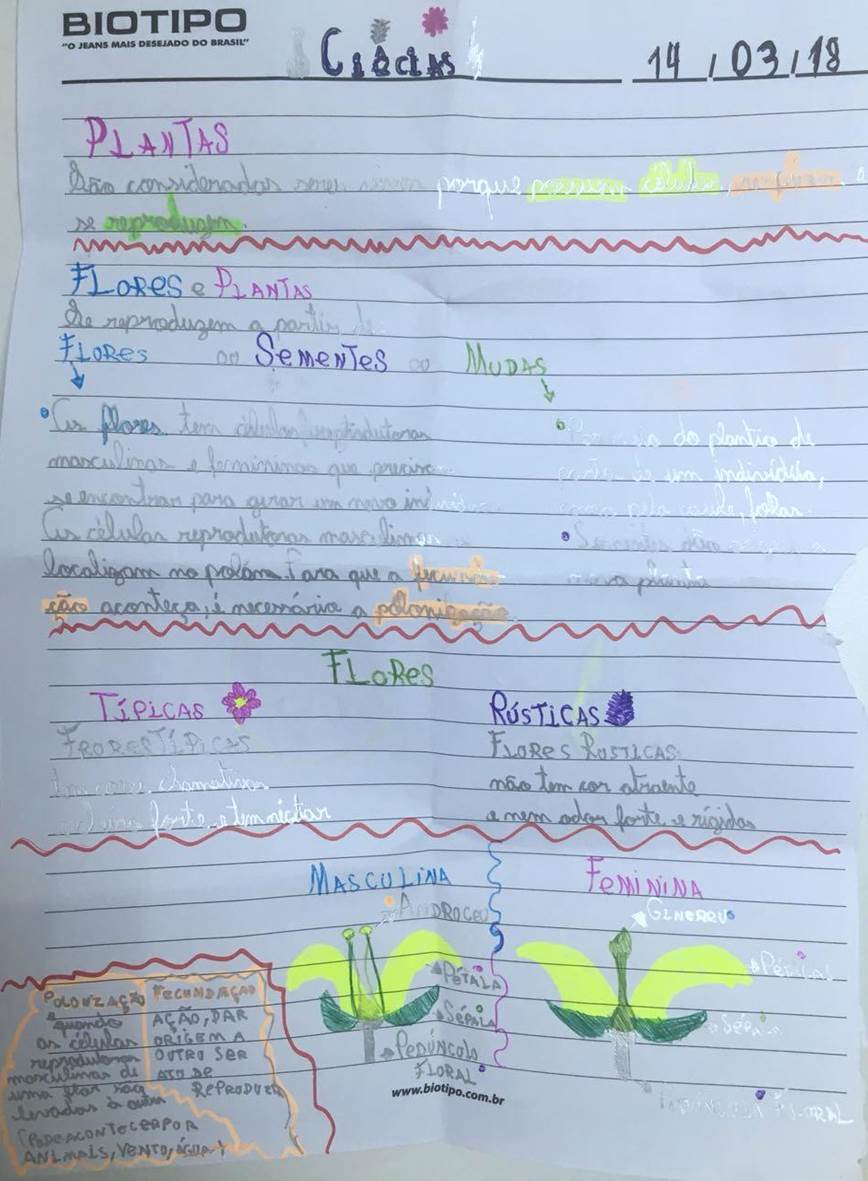 BIOTIPO
"O JEANS MAIS DESEJADO DO BRASIL"
14/03/18
PLANTAS
São considerados seres vivos porque possuem células, respiram e
se reproduzem.
FLORES e PLANTAS
Se reproduzem a partir de
FLORES ou SEMENTES ou MUDAS
As flores tem células reprodutoras
masculinas e femininas que precisa
se encontrar para gerar um novo indivíduo
As células reprodutoras masculinas se
localizam no
Para que a fecunda
ção aconteça, é necessária a polonização
do plantio de
um indivíduo,
folha
Sementes
nova planta
FLORES
TÍPICAS RÚSTICAS
FLORES TÍPICAS
tem cores chamativas
forte e tem nectar
FLORES RUSTICAS
não tem cor atraente
e nem odor forte e rígidas
MASCULINA
ANDROCEU
PÉTALA
SÉPALA
PEDÚNCOLO
FLORAL
FEMININA
GINECEU
SÉPALA
FLORAL
POLONIZAÇÃO
quando
as células
reprodutoras
masculinas de
uma flor são
levadas à outra
(PODE ACONTECER POR
ANIMAIS, VENTO, ÁGUA)
FECUNDAÇÃO
AÇÃO, DAR
ORIGEM A
OUTRO SER
ATO DE
REPRODUZIR
www.biotipo.com.br